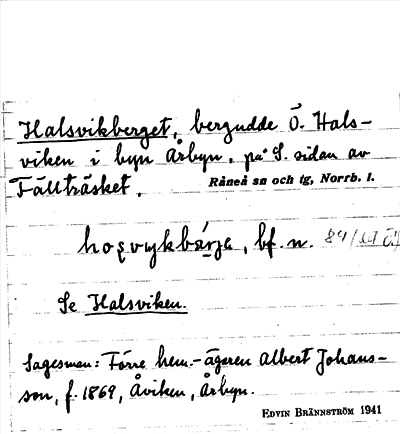 Halsvikberget, bergudde Ö. Hals-
viken i byn Årbyn, på S. sidan av
Fällträsket.
Råneå sn och tg, Norrb. l.
bf. n. 84/
Se Halsviken.
Sagesman: Förre hem.-ägaren Albert Johans-
son, f. 1869, Åviken, Årbyn.
EDVIN BRÄNNSTRÖM 1941